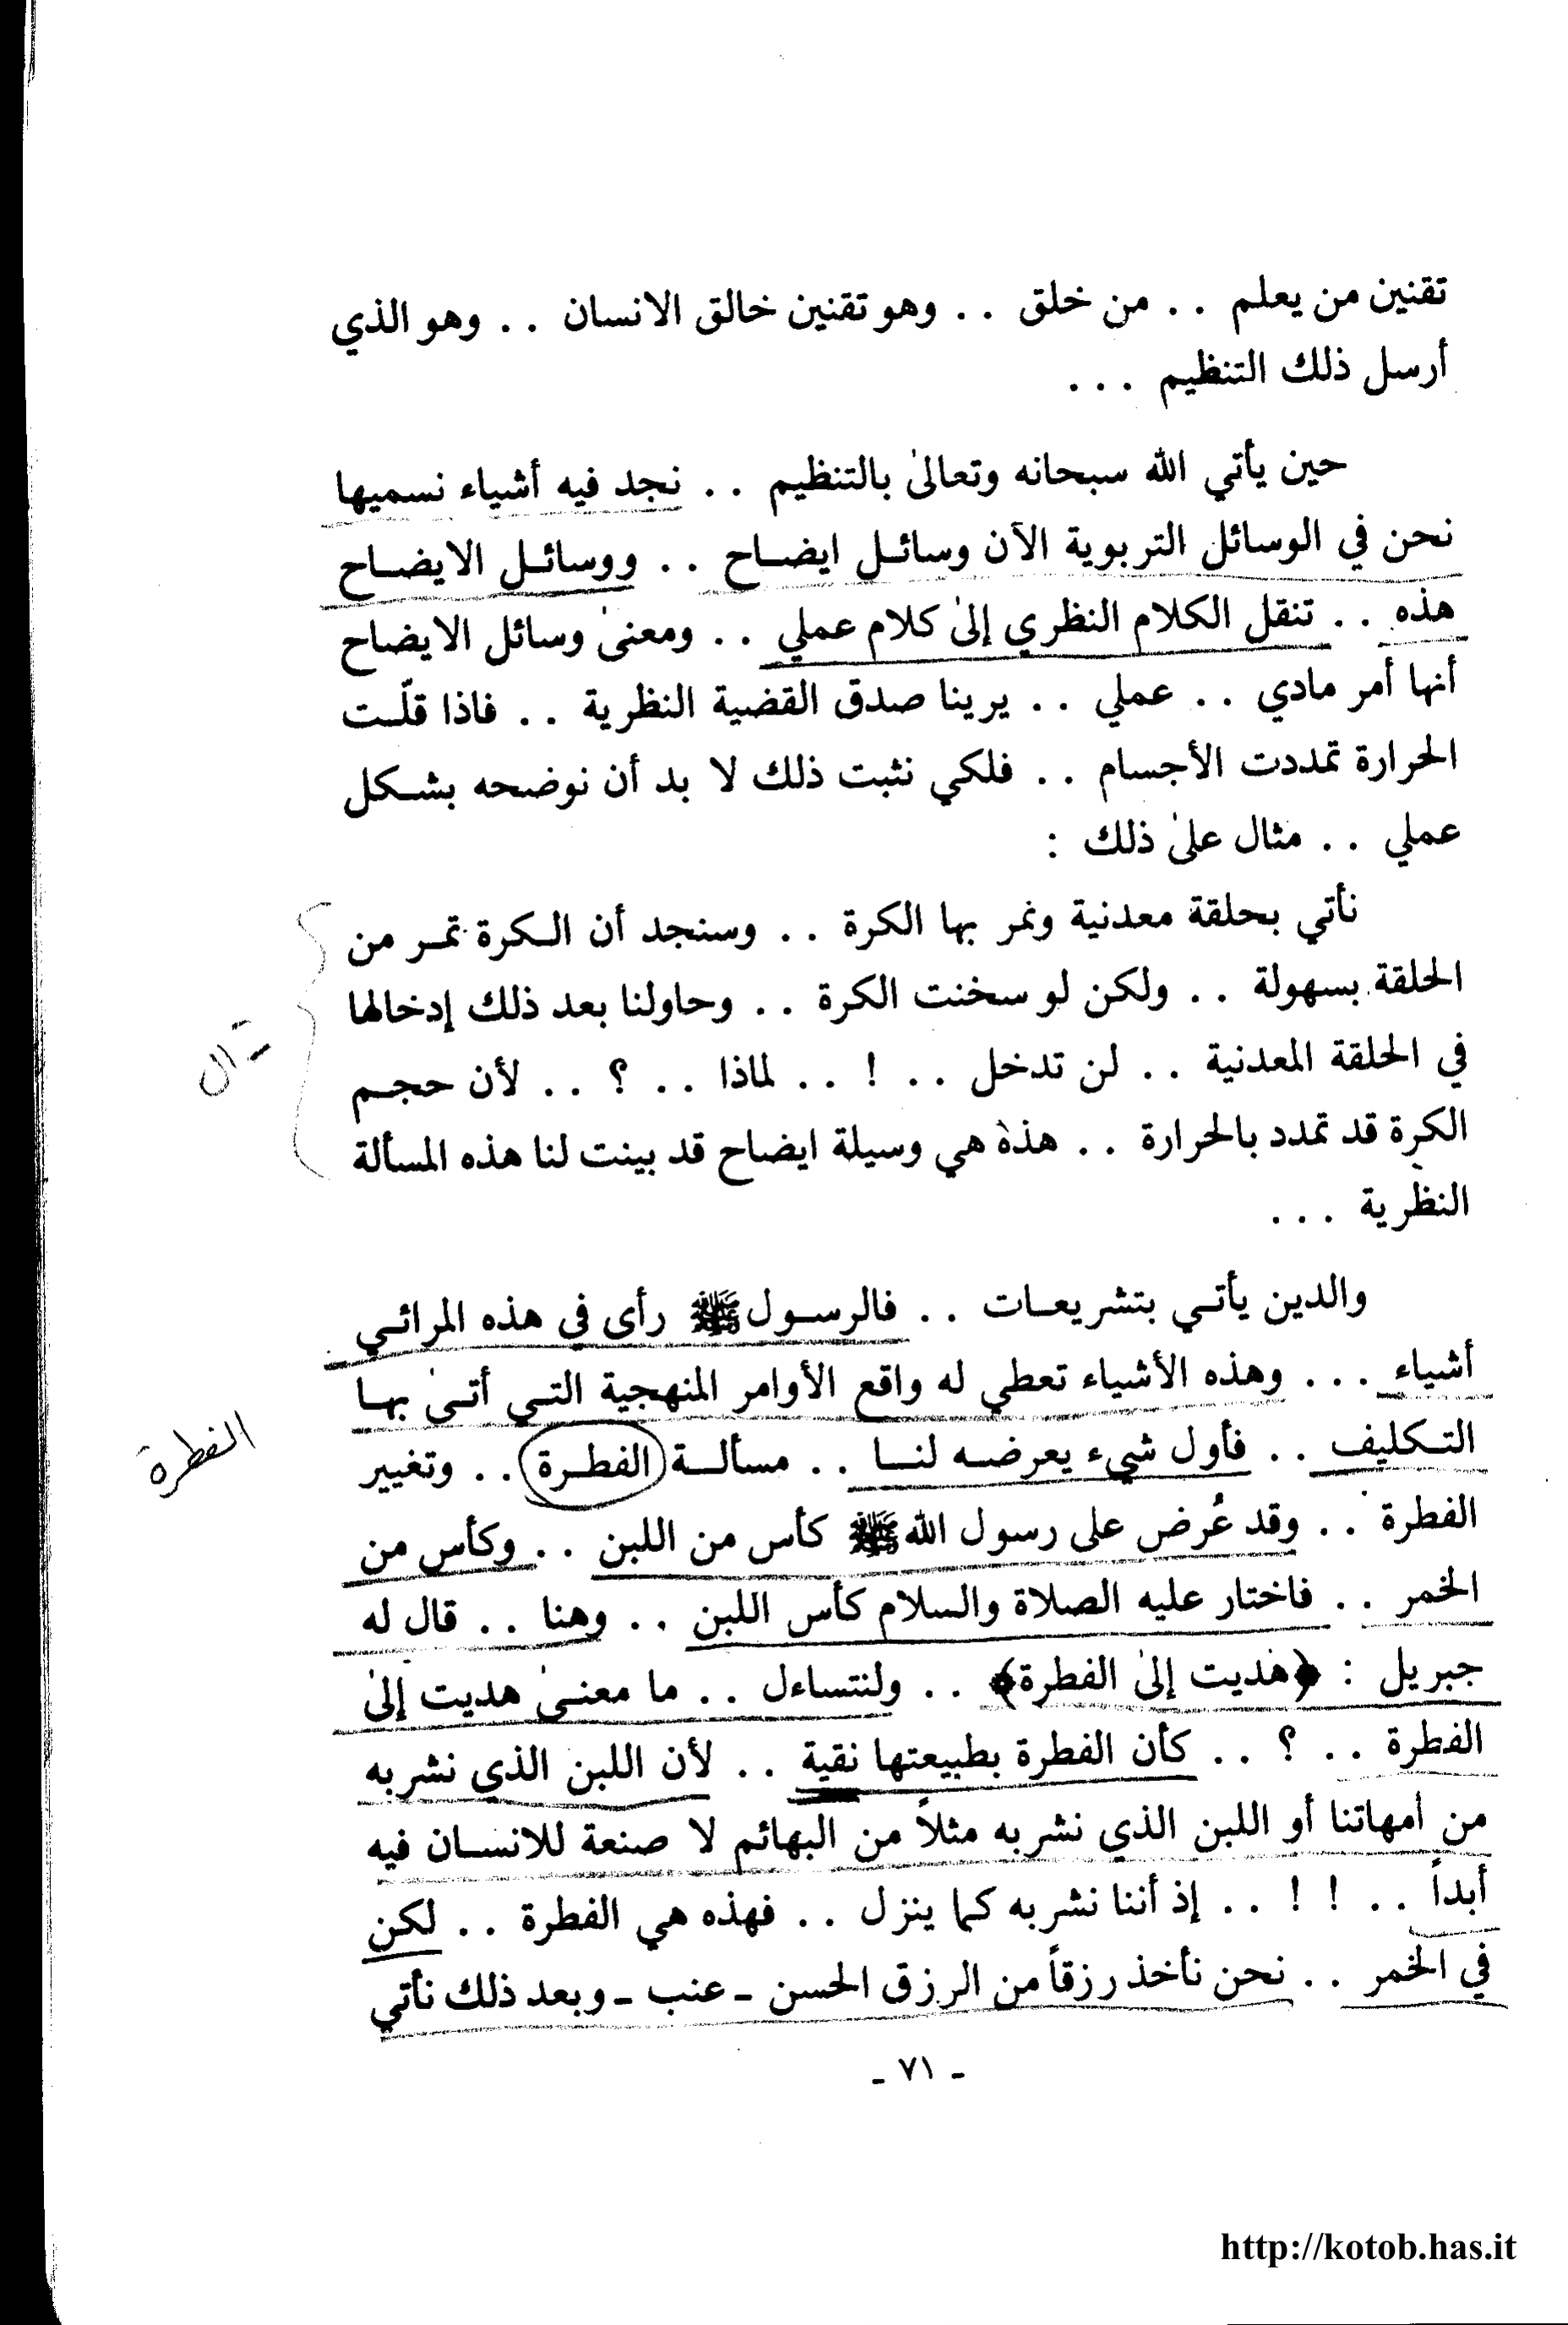 تقنين من يعلم . . من خلق . . وهو تقنين خالق الانسان . . وهو الذي
أرسل ذلك التنظيم . . .
حين يأتي الله سبحانه وتعالىٰ بالتنظيم . . نجد فيه أشياء نسميها
نحن في الوسائل التربوية الآن وسائـل ايضـاح . . ووسائـل الايضـاح
هذه . . تنقل الكلام النظري إلىٰ كلام عملي . . ومعنىٰ وسائل الايضاح
أنها أمر مادي . . عملي . . يرينا صدق القضية النظرية . . فاذا قلّـت
الحرارة تمددت الأجسام . . فلكي نثبت ذلك لا بد أن نوضحه بشـكل
عملي . . مثال علىٰ ذلك :
نأتي بحلقة معدنية ونمر بها الكرة . . وسنجد أن الـكرة تمـر من
الحلقة بسهولة . . ولكن لو سخنت الكرة . . وحاولنا بعد ذلك إدخالها
في الحلقة المعدنية . . لن تدخل . . ! . . لماذا . . ؟ . . لأن حجـم
الكرة قد تمدد بالحرارة . . هذه هي وسيلة ايضاح قد بينت لنا هذه المسألة
النظرية . . .
والدين يأتـي بتشريعـات . . فالرسـول ﷺ رأى في هذه المرائـي
أشياء . . . وهذه الأشياء تعطي له واقع الأوامر المنهجية التـي أتـىٰ بهـا
التـكليف . . فأول شيء يعرضـه لنـا . . مسألـة الفطـرة . . وتغيير
الفطرة . . وقد عُرض على رسول الله ﷺ كأس من اللبن . . وكأس من
الخمر . . فاختار عليه الصلاة والسلام كأس اللبن . . وهنا . . قال له
جبريل : ﴿هديت إلىٰ الفطرة﴾ . . ولنتساءل . . ما معنـىٰ هديت إلىٰ
الفطرة . . ؟ . . كأن الفطرة بطبيعتها نقية . . لأن اللبن الذي نشربه
من أمهاتنا أو اللبن الذي نشربه مثلاً من البهائم لا صنعة للانسـان فيه
أبداً . . ! ! . . إذ أننا نشربه كما ينزل . . فهذه هي الفطرة . . لكن
في الخمر . . نحن نأخذ رزقاً من الرزق الحسن ـ عنب ـ وبعد ذلك نأتي
الفطرة
ـ ٧١ ـ
http://kotob.has.it